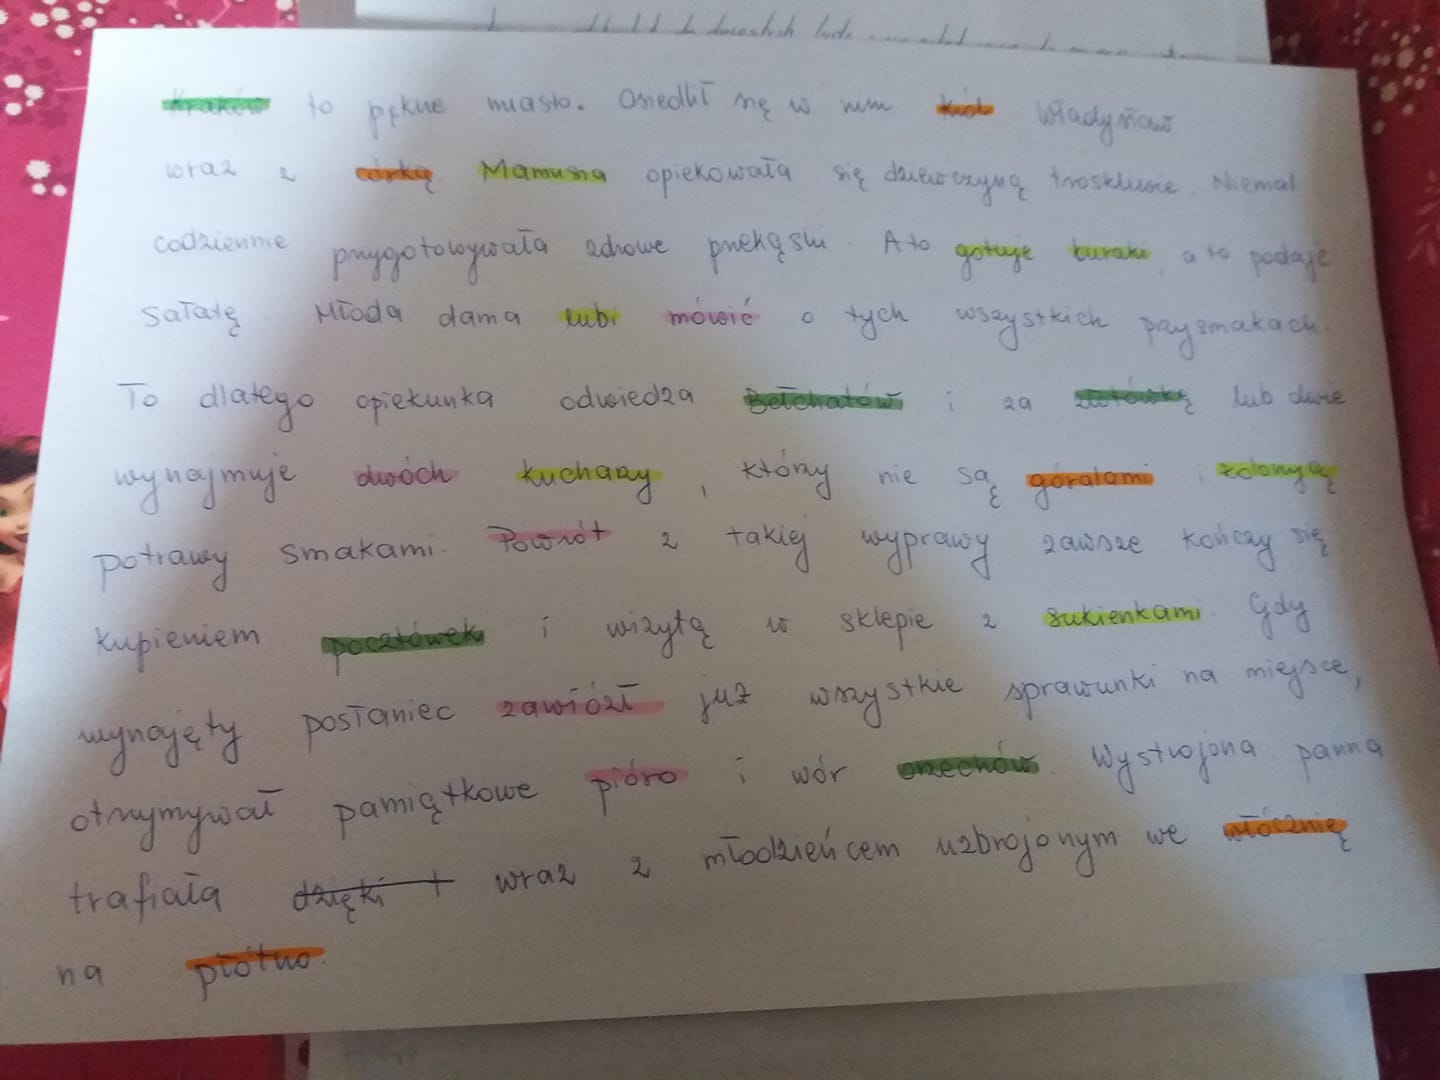 Kraków to piękne miasto. Osiedlił się w nim król Władysław
wraz z córką Mamusia opiekowała się dziewczyną troskliwie. Niemal
codziennie przygotowywała zdrowe przekąski. A to gotuje buraki, a to podaje
sałatę. Młoda dama lubi mówić o tych wszystkich przysmakach.
To dlatego opiekunka odwiedza Bełchatów i za złotówkę lub dwie
wynajmuje dwóch kucharzy, którzy nie są góralami i
potrawy smakami. Powrót z takiej wyprawy zawsze kończy się
kupieniem pocztówek i wizytą w sklepie z sukienkami. Gdy
wynajęty posłaniec zawiózł już wszystkie sprawunki na miejsce,
otrzymywał pamiątkowe pióro i wór orzechów. Wystrojona panna
trafiała dzięki t wraz z młodzieńcem uzbrojonym we włócznię
na płótno.